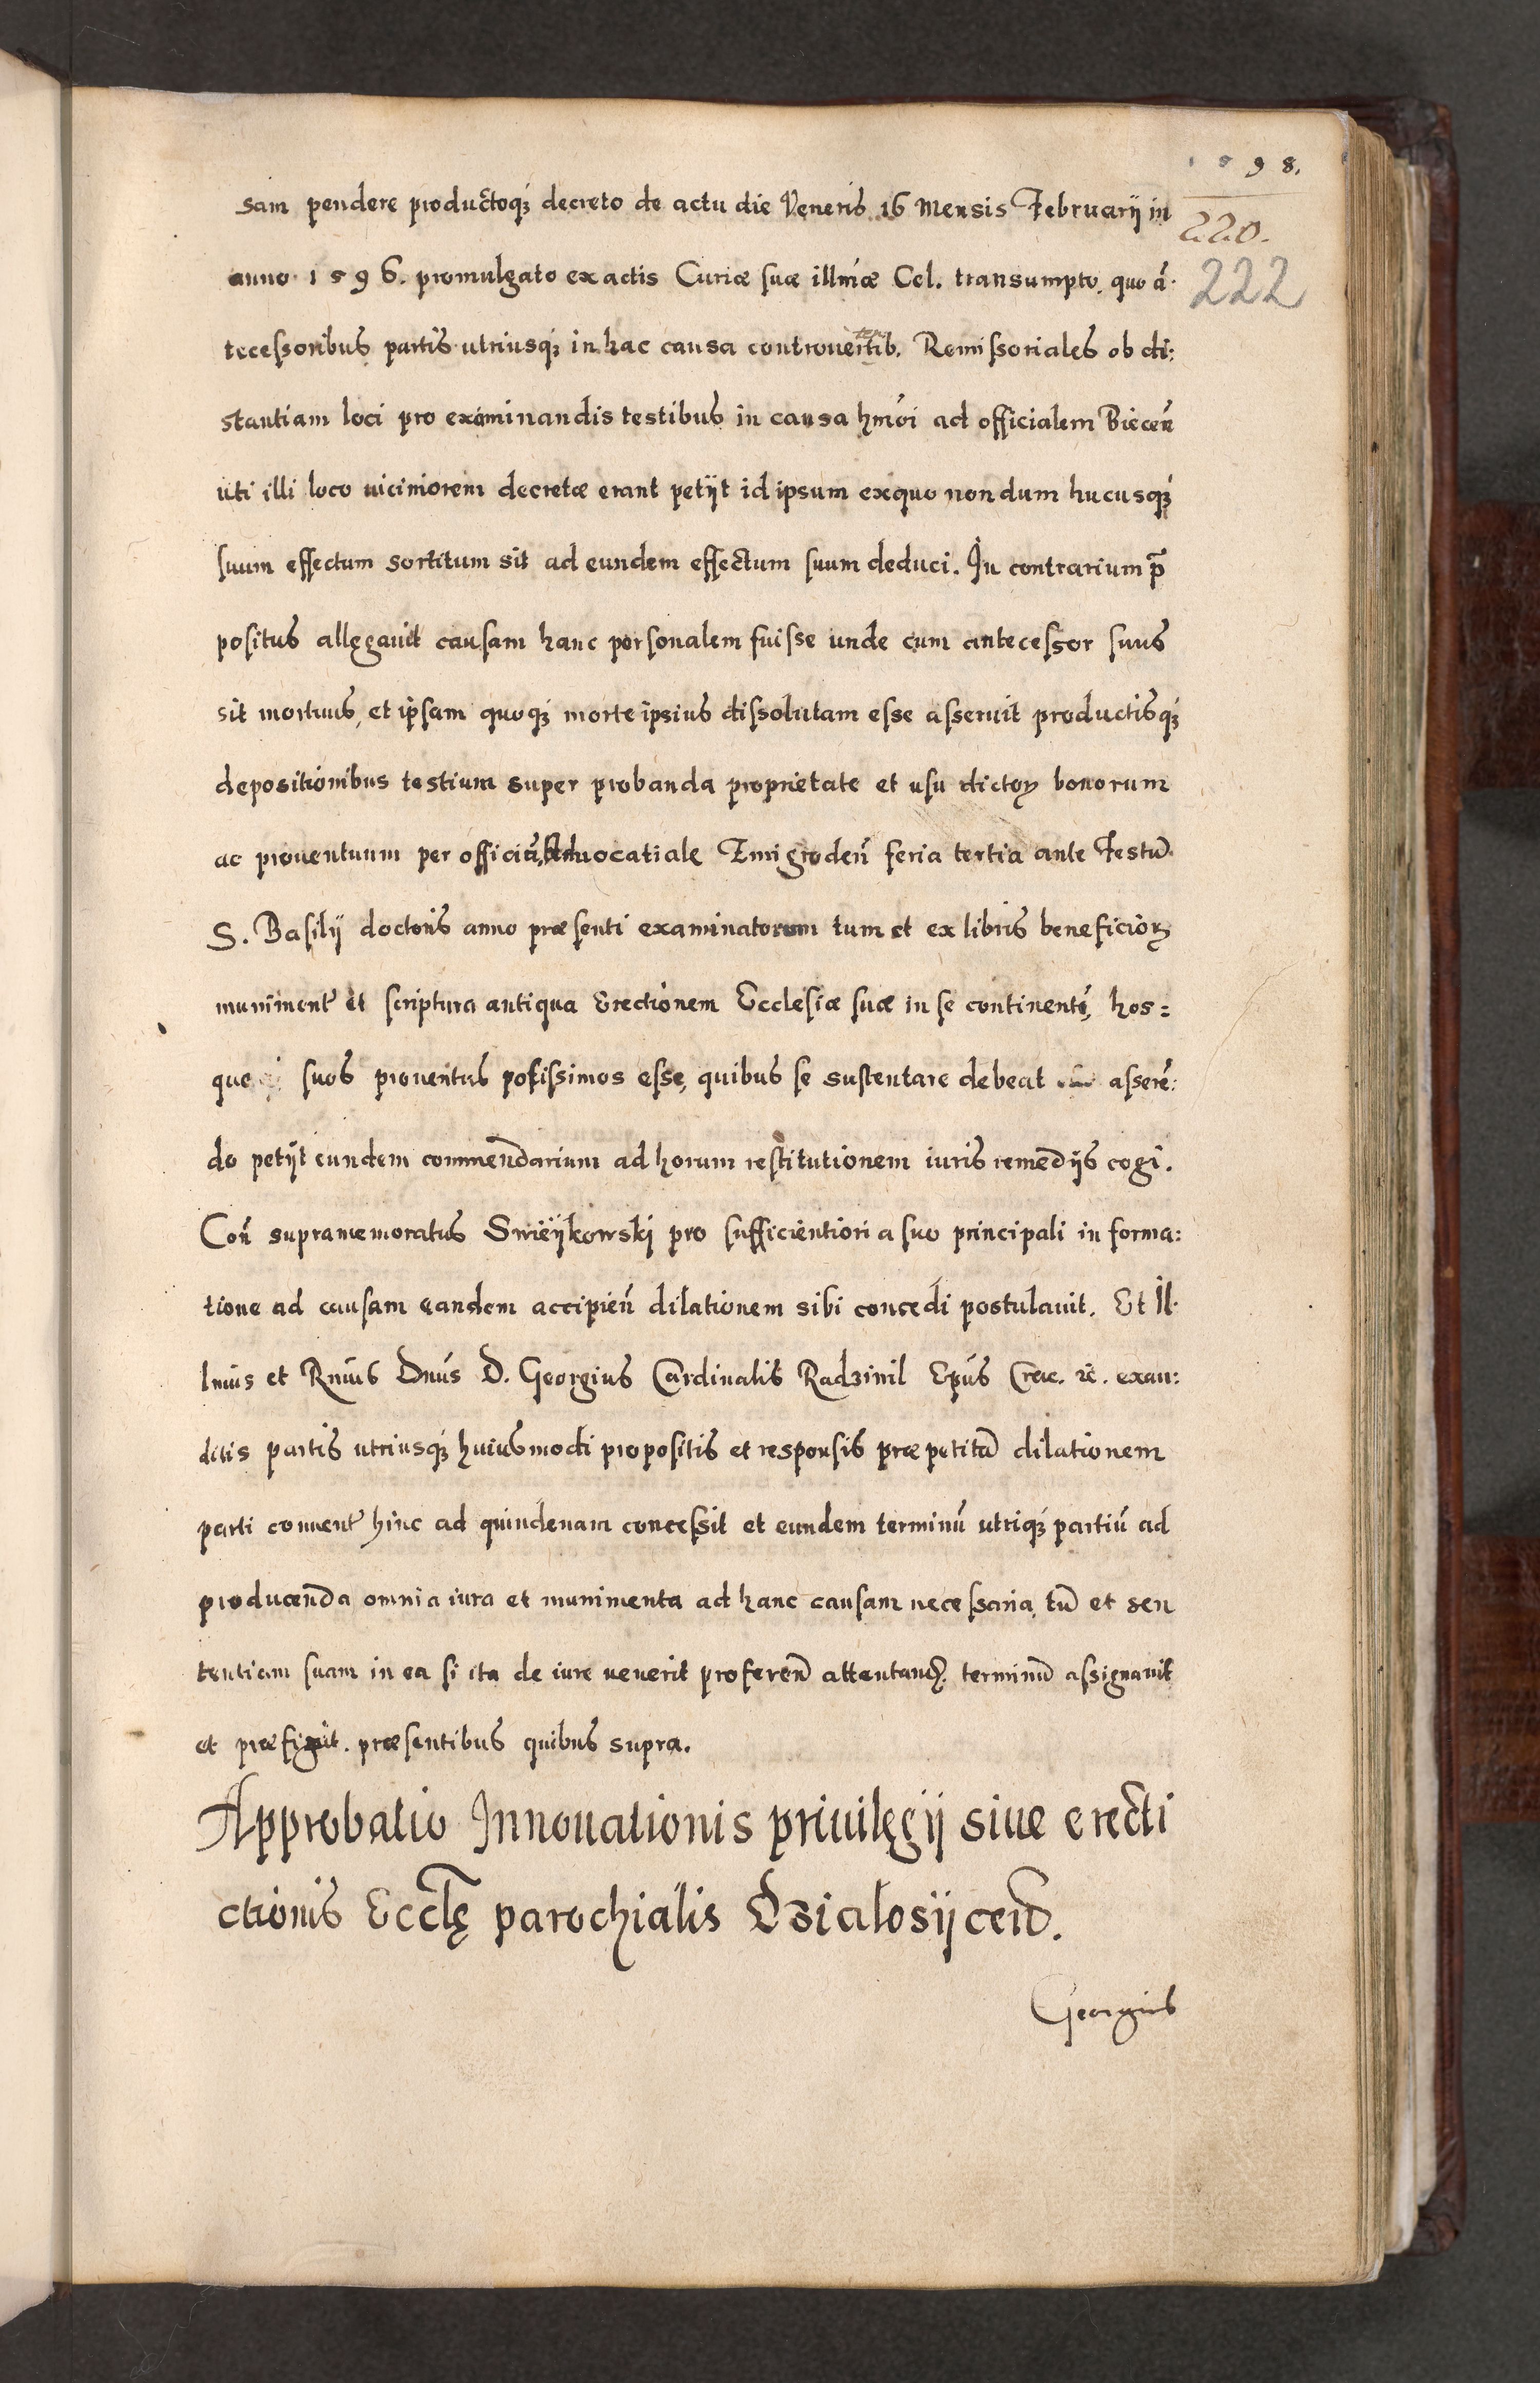 1598.
220.
222
sam pendere productoq₃ decreto de actu die Veneris 16 Mensis Februarij in
anno 1596. promulgato ex actis Curiæ suæ illmæ Cel. transumpto, quo ā
tecessoribus partis utriusq₃ in hac causa controuertēib. Remissoriales ob di:
stantiam loci pro examinandis testibus in causa hmōi ad officialem Biecen̄
uti illi loco uiciniorem decretæ erant petijt id ipsum exquo nondum hucusq₃
suum effectum sortitum sit ad eundem effectum suum deduci. In contrarium p̄
positus allegauit causam hanc personalem fuisse unde cum antecessor suus
sit mortuus, et ipsam quoq₃ morte ipsius dissolutam esse asseruit productisq₃
depositionibus testium super probanda proprietate et usu dictoꝝ bonorum
ac prouentuum per officiū Aduocatiale Zmigroden̄ feria tertia ante Festū
S. Basilij doctoris anno præsenti examinatorum tum et ex libris beneficioꝝ
muniment̄ et scriptura antiqua Erectionem Ecclesiæ suæ in se continentē, hos=
que suos prouentus potissimos esse, quibus se sustentare debeat asserē:
do petijt eundem commendarium ad horum restitutionem iuris remedijs cogi.
Con̄ supramemoratus Swieÿkowskj pro sufficientiori a suo principali informa:
tione ad causam eandem accipien̄ dilationem sibi concedi postulauit. Et Il-
lmus et Rmūs Dnūs D. Georgius Cardinalis Radziuil Epūs Crac. rē. exau:
ditis partis utriusq₃ huiusmodi propositis et responsis præpetitā dilationem
parti conuent̄ hinc ad quindenam concessit et eundem terminū utriq₃ partiū ad
producenda omnia iura et munimenta ad hanc causam necessaria, tū et sen
tentiam suam in ea si ita de iure uenerit proferen̄ attentand terminū assignauit
et præfigit. præsentibus quibus supra.
Approbatio Innouationis priuilęgij siue erecti
ctionis Ecclę parochialis Dzialosijcen̄.
Georgius